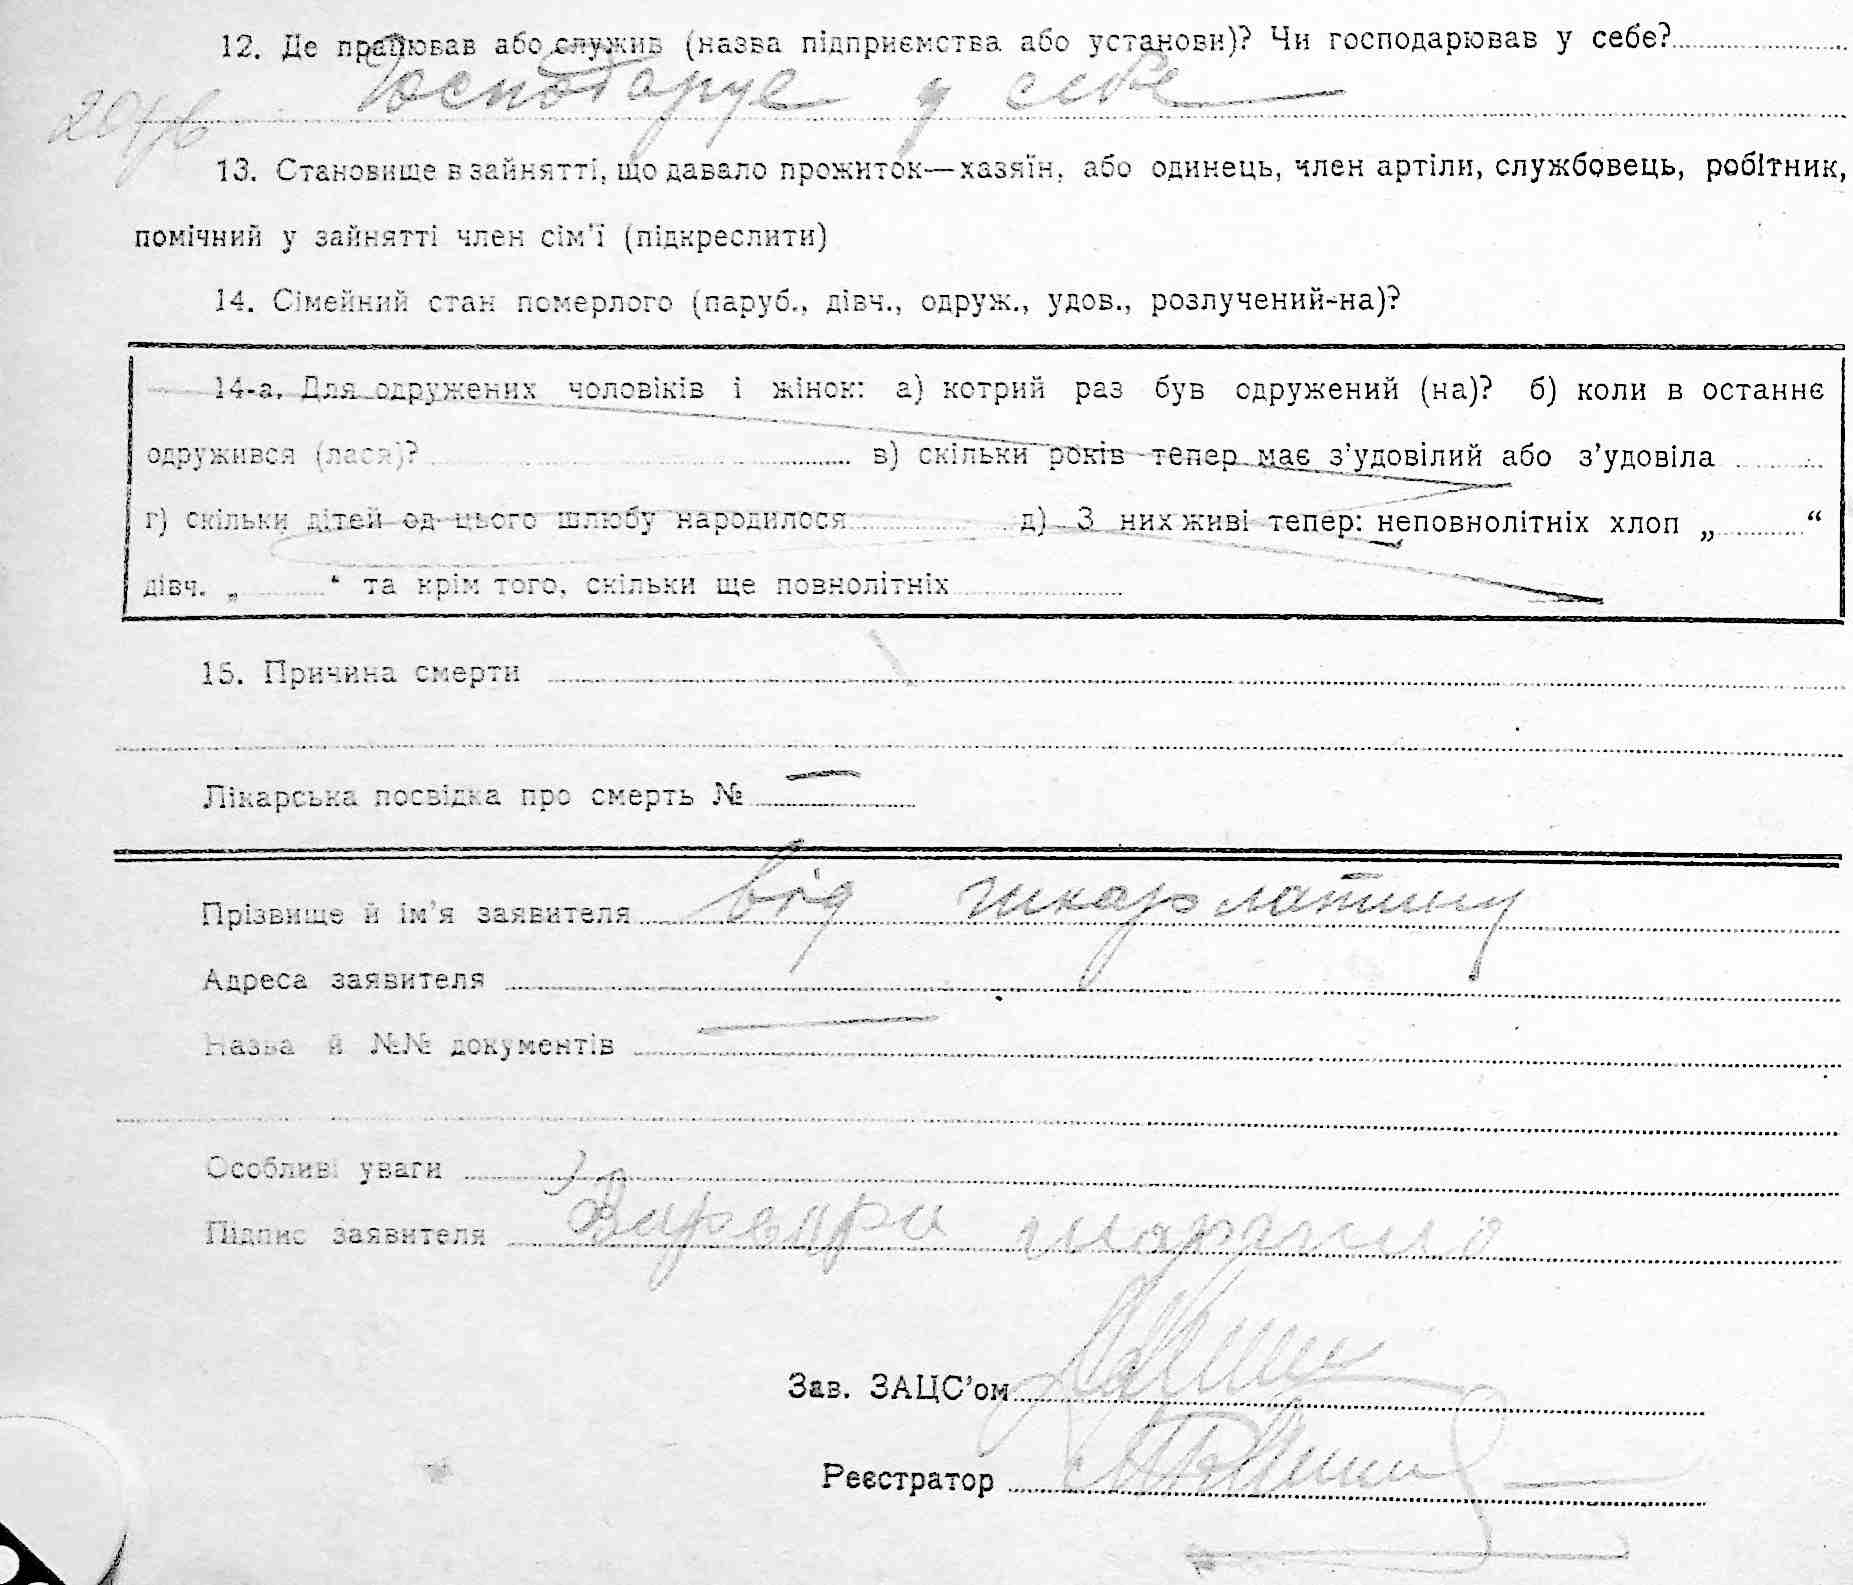 12. Де працював або служив (назва підприємства або установи)? Чи господарював у себе?
Господарує у себе
13. Становище в зайнятті, що давало прожиток—хазяїн, або одинець, член артіли, службовець, робітник,
помічний у зайнятті член сім'ї (підкреслити)
14. Сімейний стан померлого (паруб., дівч., одруж., удов., розлучений-на)?
14-а. Для одружених чоловіків і жінок: а) котрий раз був одружений (на)? б) коли в останнє
одружився (лася)? в) скільки років тепер має з'удовілий або з'удовіла
г) скільки дітей од цього шлюбу народилося д) З них живі тепер: неповнолітніх хлоп „ “
дівч. „ “ та крім того, скільки ще повнолітніх
15. Причина смерти
Лікарська посвідка про смерть № —
Прізвище й ім'я заявителя від шкарлатини
Адреса заявителя
Назва й №№ документів —
Особливі уваги
Підпис заявителя
Зав. ЗАЦС'ом
Реєстратор